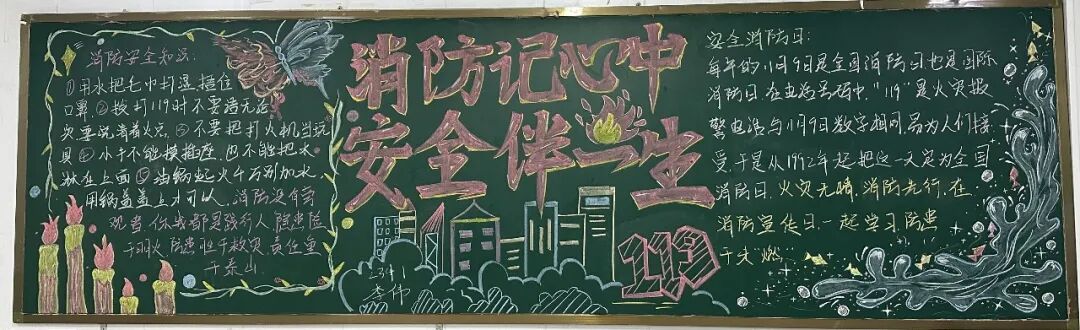 消防安全知识:
①用水把毛巾打湿,捂住
口鼻②拨打119时不要造无
灾要说清着火点,③不要把打火机当玩
具④小手不能摸插座,也不能把水
淋在上面⑤油锅起火千万别加水,
用锅盖盖上才可以,消防没有旁
观者,你我都是践行人,隐患险
于明火,防患胜于救灾,责任重
于泰山.
消防记心中
安全伴一生
119
李伟
安全消防日:
每年的11月9日是全国消防日也是国际
消防日,在电话号码中,"119"是火灾报
警电话与11月9日数字相同,易为人们接
受,于是从1992年起把这一天定为全国
消防日,火灾无情,消防先行,在
消防宣传日一起学习防患
于未"燃"